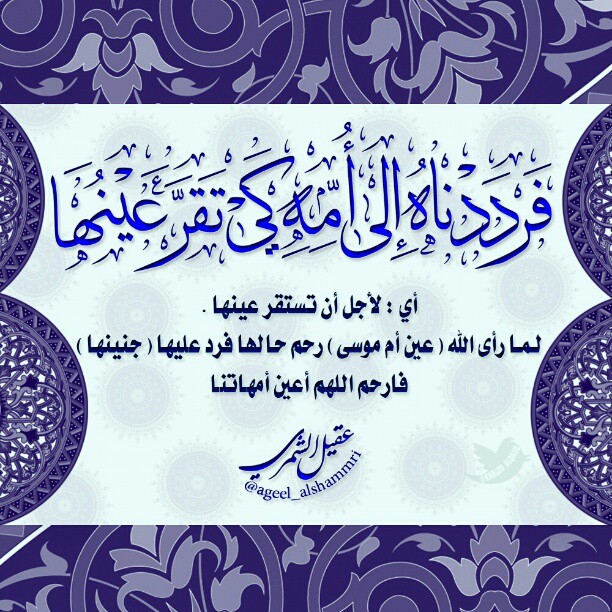 فَرَدَدْنَاهُ إِلَى أُمِّهِ كَيْ تَقَرَّ عَيْنُهَا
أي : لأجل أن تستقر عينها .
لما رأى الله ( عين أم موسى ) رحم حالها فرد عليها ( جنينها )
فارحم اللهم أعين أمهاتنا
عقيل الشمري
@ageel_alshammri